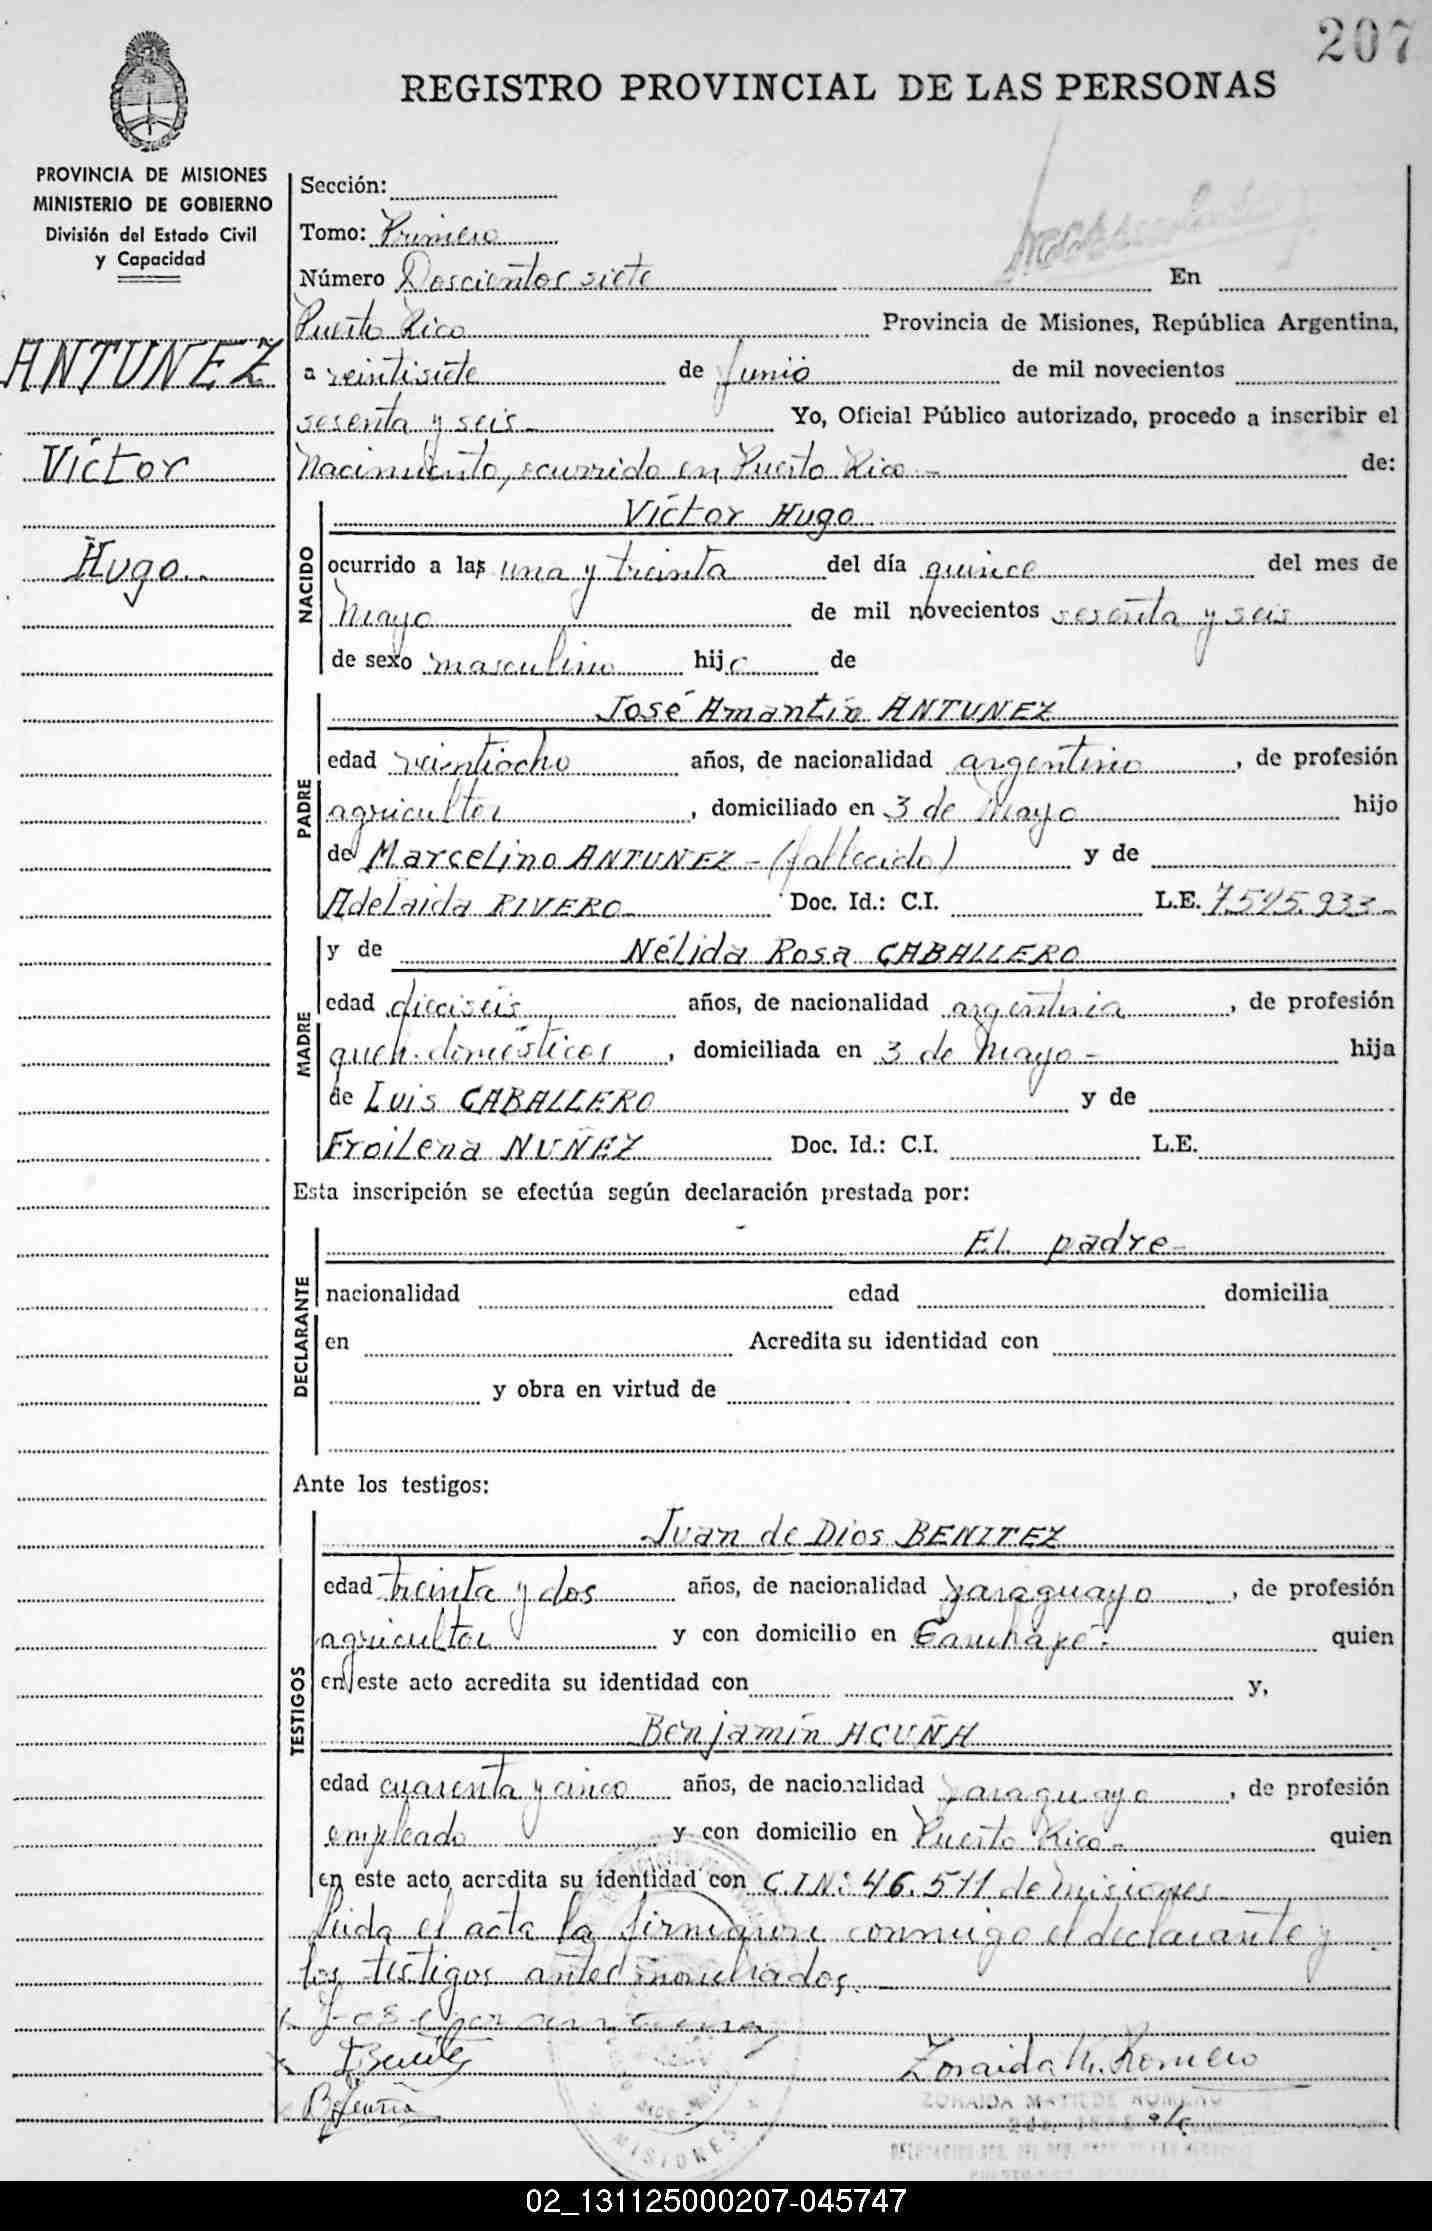 207
REGISTRO PROVINCIAL DE LAS PERSONAS
PROVINCIA DE MISIONES
MINISTERIO DE GOBIERNO
División del Estado Civil
y Capacidad
ANTUNEZ
Víctor
Hugo
Sección:
Tomo: Primero
Número Doscientos siete En
Puerto Rico Provincia de Misiones, República Argentina,
a veintisiete de Junio de mil novecientos
sesenta y seis Yo, Oficial Público autorizado, procedo a inscribir el
Nacimiento, ocurrido en Puerto Rico de:
NACIDO
Víctor Hugo
ocurrido a las una y treinta del día quince del mes de
Mayo de mil novecientos sesenta y seis
de sexo masculino hijo de
PADRE
José Amantín ANTUNEZ
edad veintiocho años, de nacionalidad argentino, de profesión
agricultor, domiciliado en 3 de Mayo hijo
de Marcelino ANTUNEZ - (fallecido) y de
Adelaida RIVERO Doc. Id.: C.I. L.E. 7.545.933
MADRE
y de Nélida Rosa CABALLERO
edad dieciseis años, de nacionalidad argentina, de profesión
queh. domésticos, domiciliada en 3 de Mayo - hija
de Luis CABALLERO y de
Froilena NUÑEZ Doc. Id.: C.I. L.E.
Esta inscripción se efectúa según declaración prestada por:
DECLARANTE
El padre
nacionalidad edad domicilia
en Acredita su identidad con
y obra en virtud de
Ante los testigos:
TESTIGOS
Juan de Dios BENITEZ
edad treinta y dos años, de nacionalidad paraguayo, de profesión
agricultor y con domicilio en quien
en este acto acredita su identidad con y,
Benjamín ACUÑA
edad cuarenta y cinco años, de nacionalidad paraguayo, de profesión
empleado y con domicilio en Puerto Rico quien
en este acto acredita su identidad con C.I.Nº: 46.511 de Misiones
Leída el acta la firmaron conmigo el declarante y
los testigos antes nombrados.
JBenitez
BAcuña
Zoraida M. Romero
ZORAIDA MATILDE ROMERO
MISIONES
02_131125000207-045747